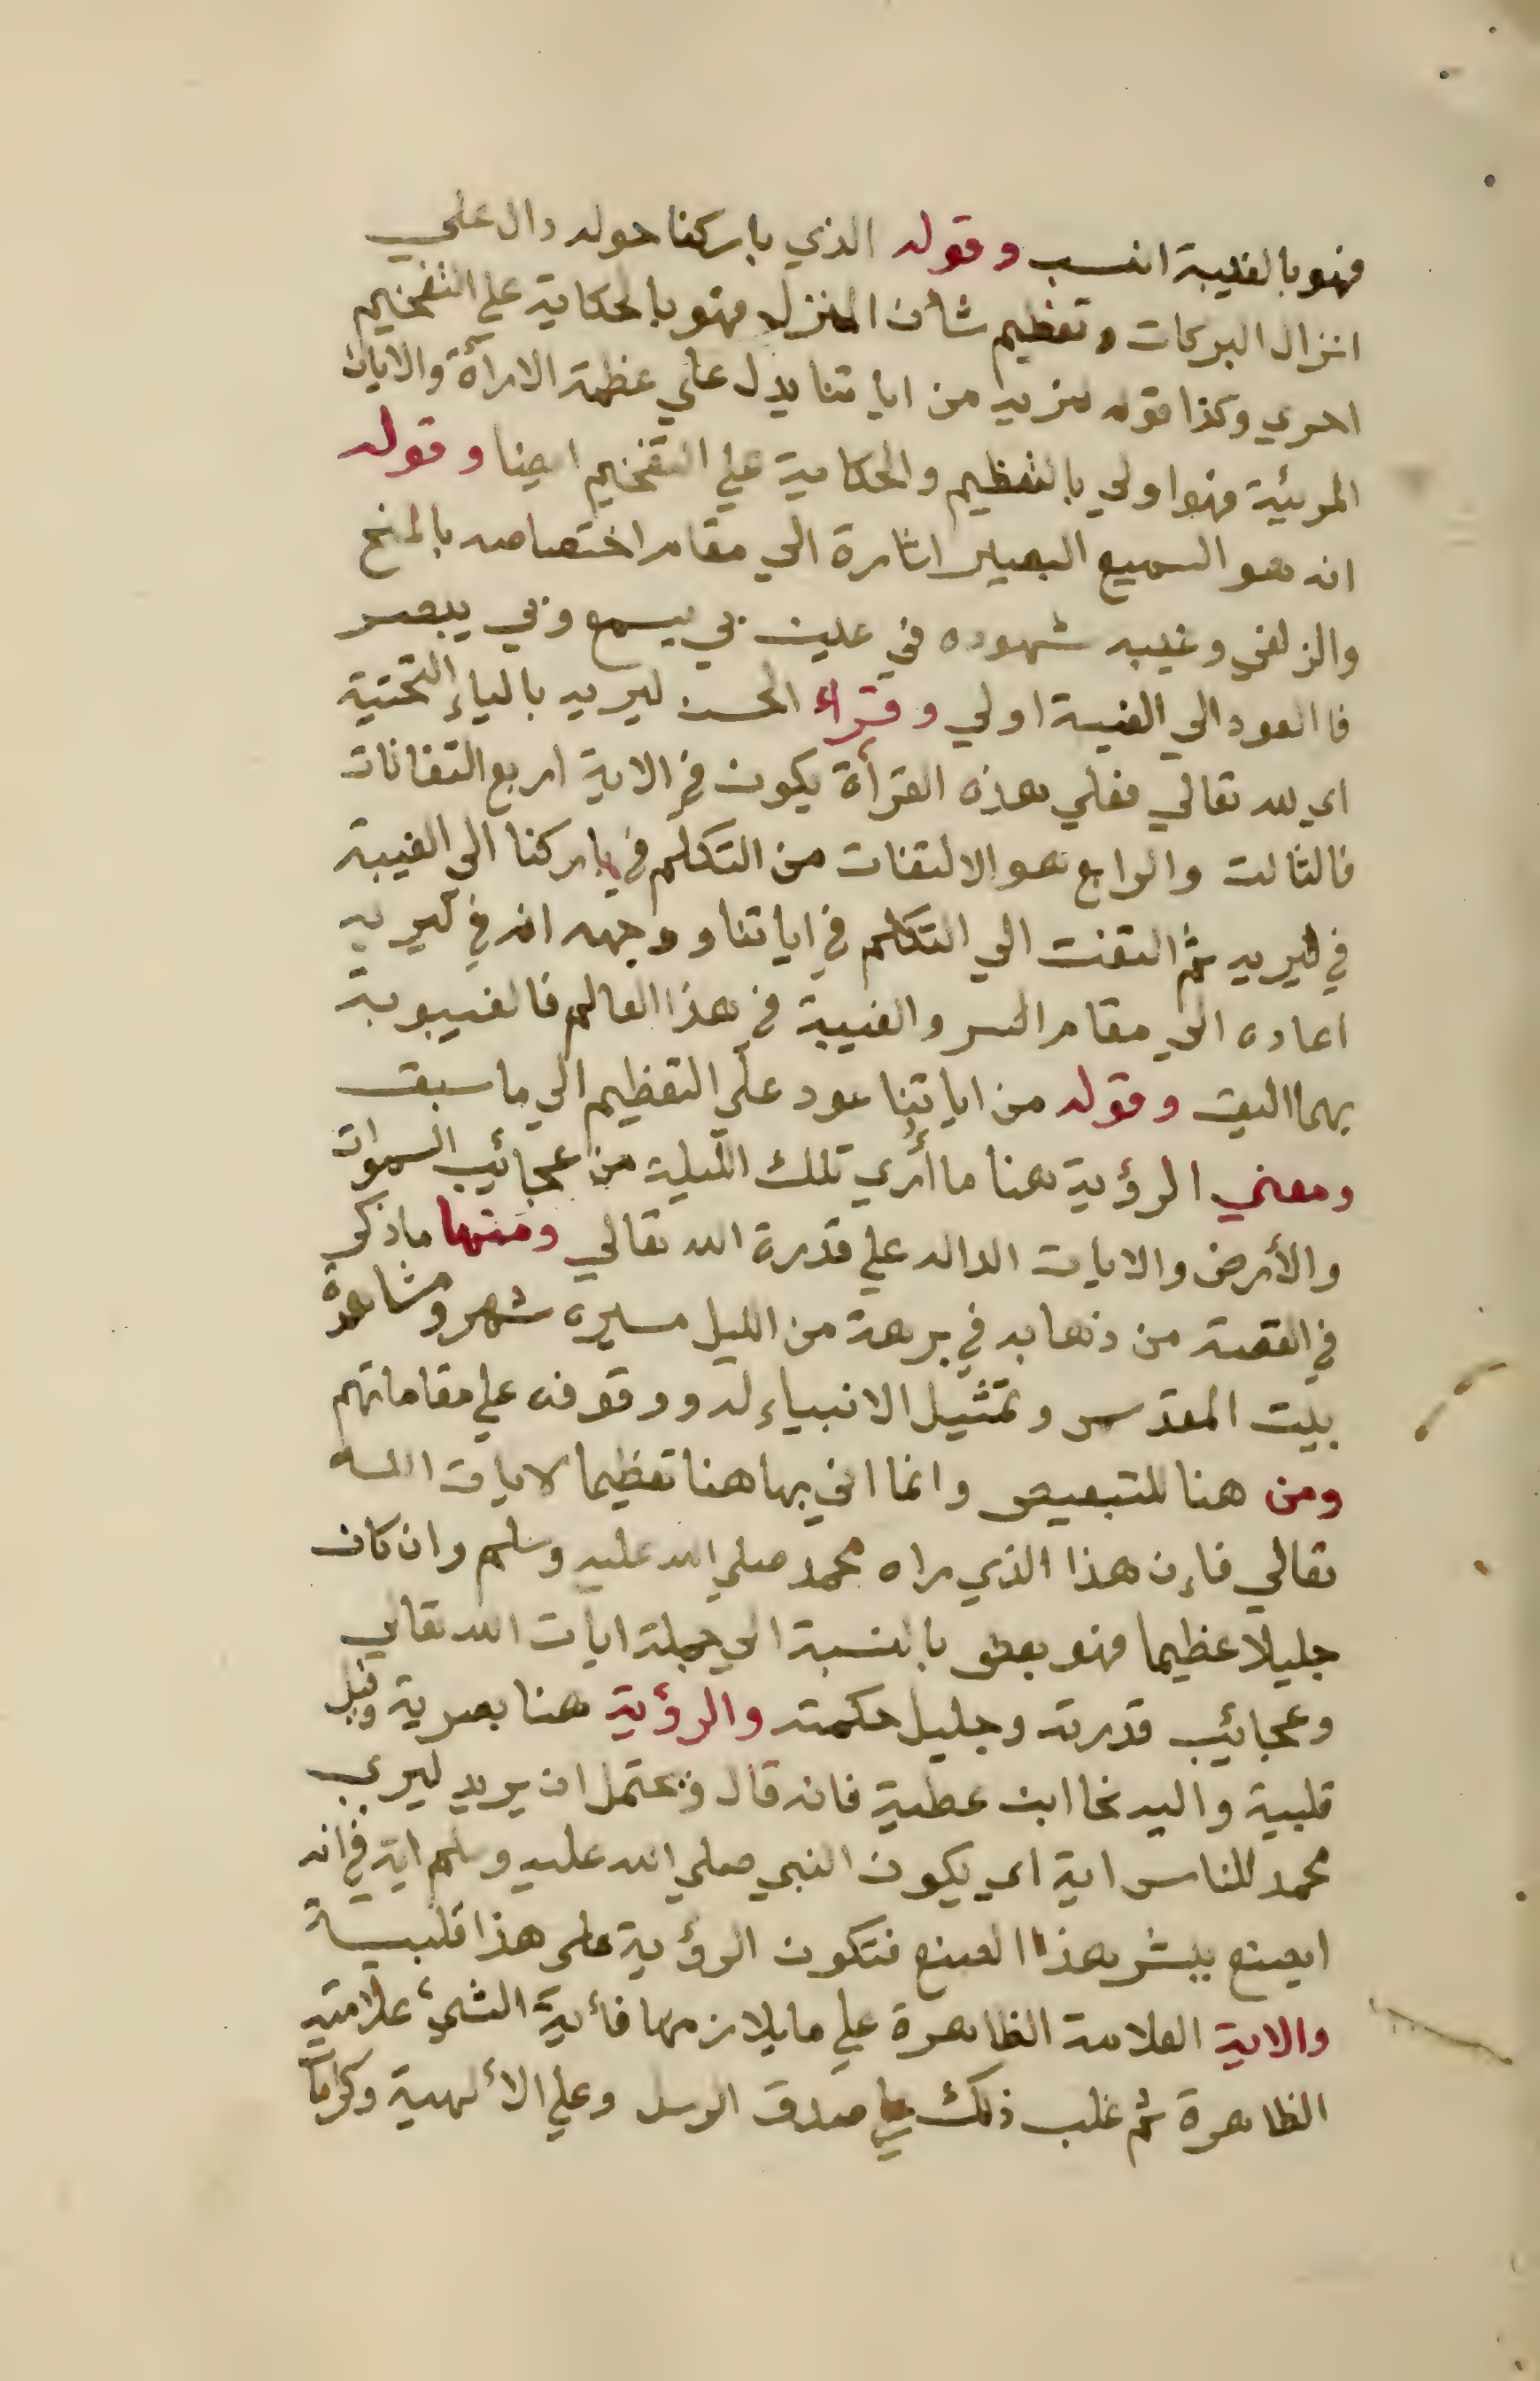 فهو بالغيبة انسب وقوله الذي باركنا حوله دال علي
انزال البركات وتعظيم شان المنزل فهو بالحكاية علي التفخيم
احري وكذا قوله لنريه من اياتنا يدل علي عظمة الاراة والايات
المرئية فهوا ولي بالتعظيم والحكاية علي التفخيم ايضا وقوله
انه هو السميع البصير اشارة الي مقام اختصاصه بالمنح
والزلفي وغيبه شهوده في عين بي يسمع وبي يبصر
فا العود الي الغيبة اولي وقراء الحسن ليريه بالياء التحتية
اي الله تعالي فعلي هذه القرأة يكون في الاية اربع التفاتات
فالثالث والرابع هو الالتفات من التكلم في باركنا الي الغيبة
في ليريه ثم التفت الي التكلم في اياتنا ووجهه انه في ليريه
اعاده الي مقام السر والغيبة في هذا العالم فالغيبوبة
بهما اليق وقوله من اياتنا عود علي التعظيم الي ما سبق
ومعني الرؤية هنا ما أري تلك الليلة من عجائب السموات
والأرض والايات الداله علي قدرة الله تعالي ومنها ما ذكر
في القصة من ذهابه في برهة من الليل مسيره شهر ومشاهدة
بيت المقدس وتمثيل الانبياء له ووقوفه علي مقاماتهم
ومن هنا للتبعيض وانما اتي بها هنا تعظيما لايات الله
تعالي فإن هذا الذي راه محمد صلي الله عليه وسلم وان كان
جليلا عظيما فهو بعض بالنسبة الي جملة ايات الله تعالي
وعجائب قدرته وجليل حكمته والرؤية هنا بصرية وقيل
قلبية واليه نحا ابن عطية فانه قال ويحتمل ان يريد ليري
محمد للناس اية اي يكون النبي صلي الله عليه وسلم اية في انه
ايصنع ببشر هذا الصنع فتكون الرؤية علي هذا قلبية
والاية العلامة الظاهرة علي ما يلازمها فأية الشئ علامته
الظاهرة ثم غلب ذلك علي صدق الرسل وعلي الألهية وكرامات